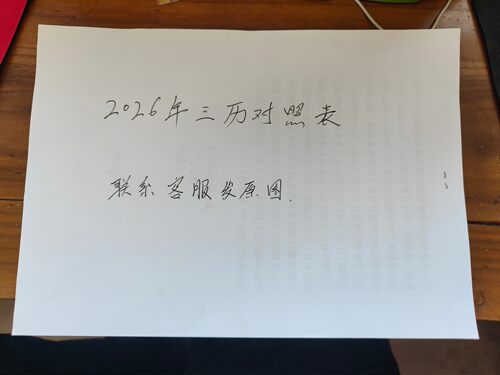 2026年三历对照表
联系客服发原图.